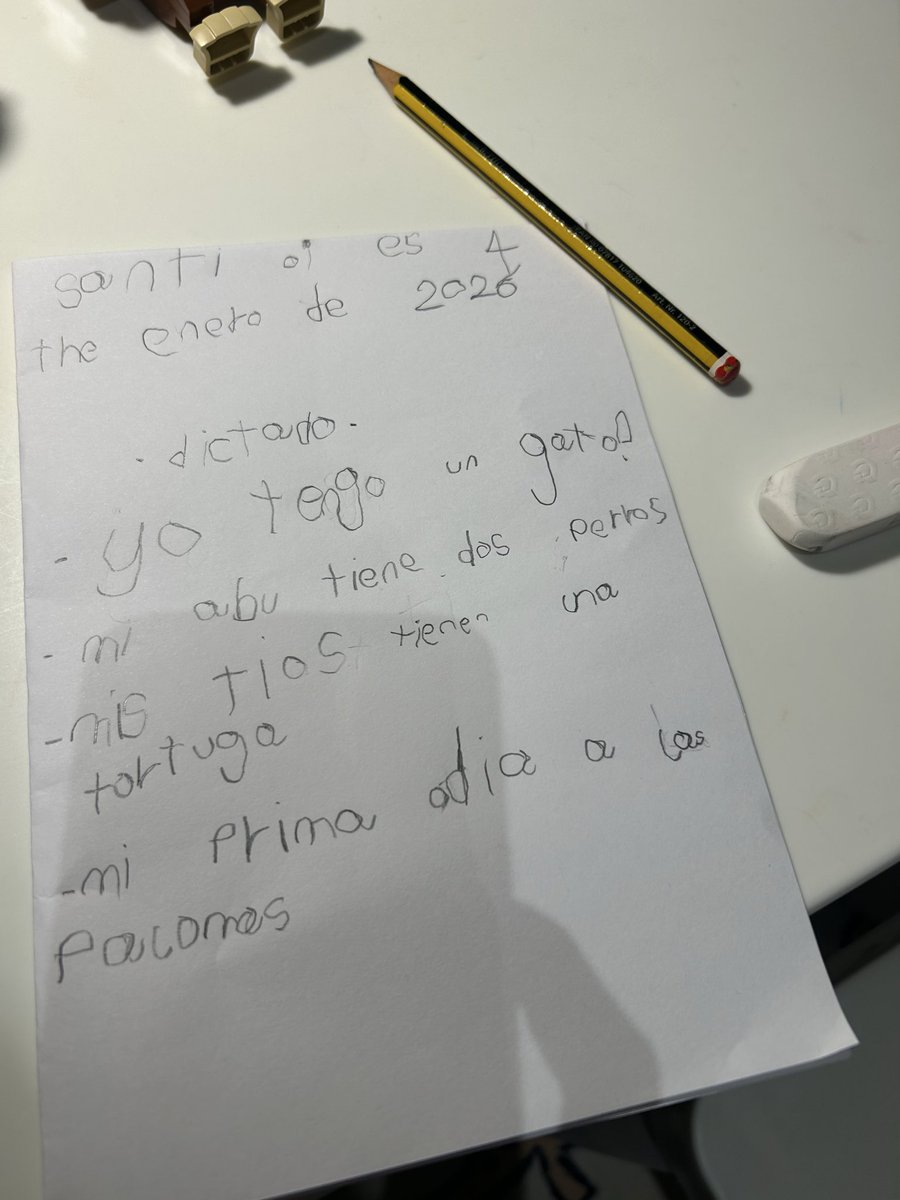 santi oi es 4
the enero de 2026
- dictado -
- yo tengo un gato
- mi abu tiene dos perros
- mis tios tienen una
tortuga
- mi prima odia a las
palomas